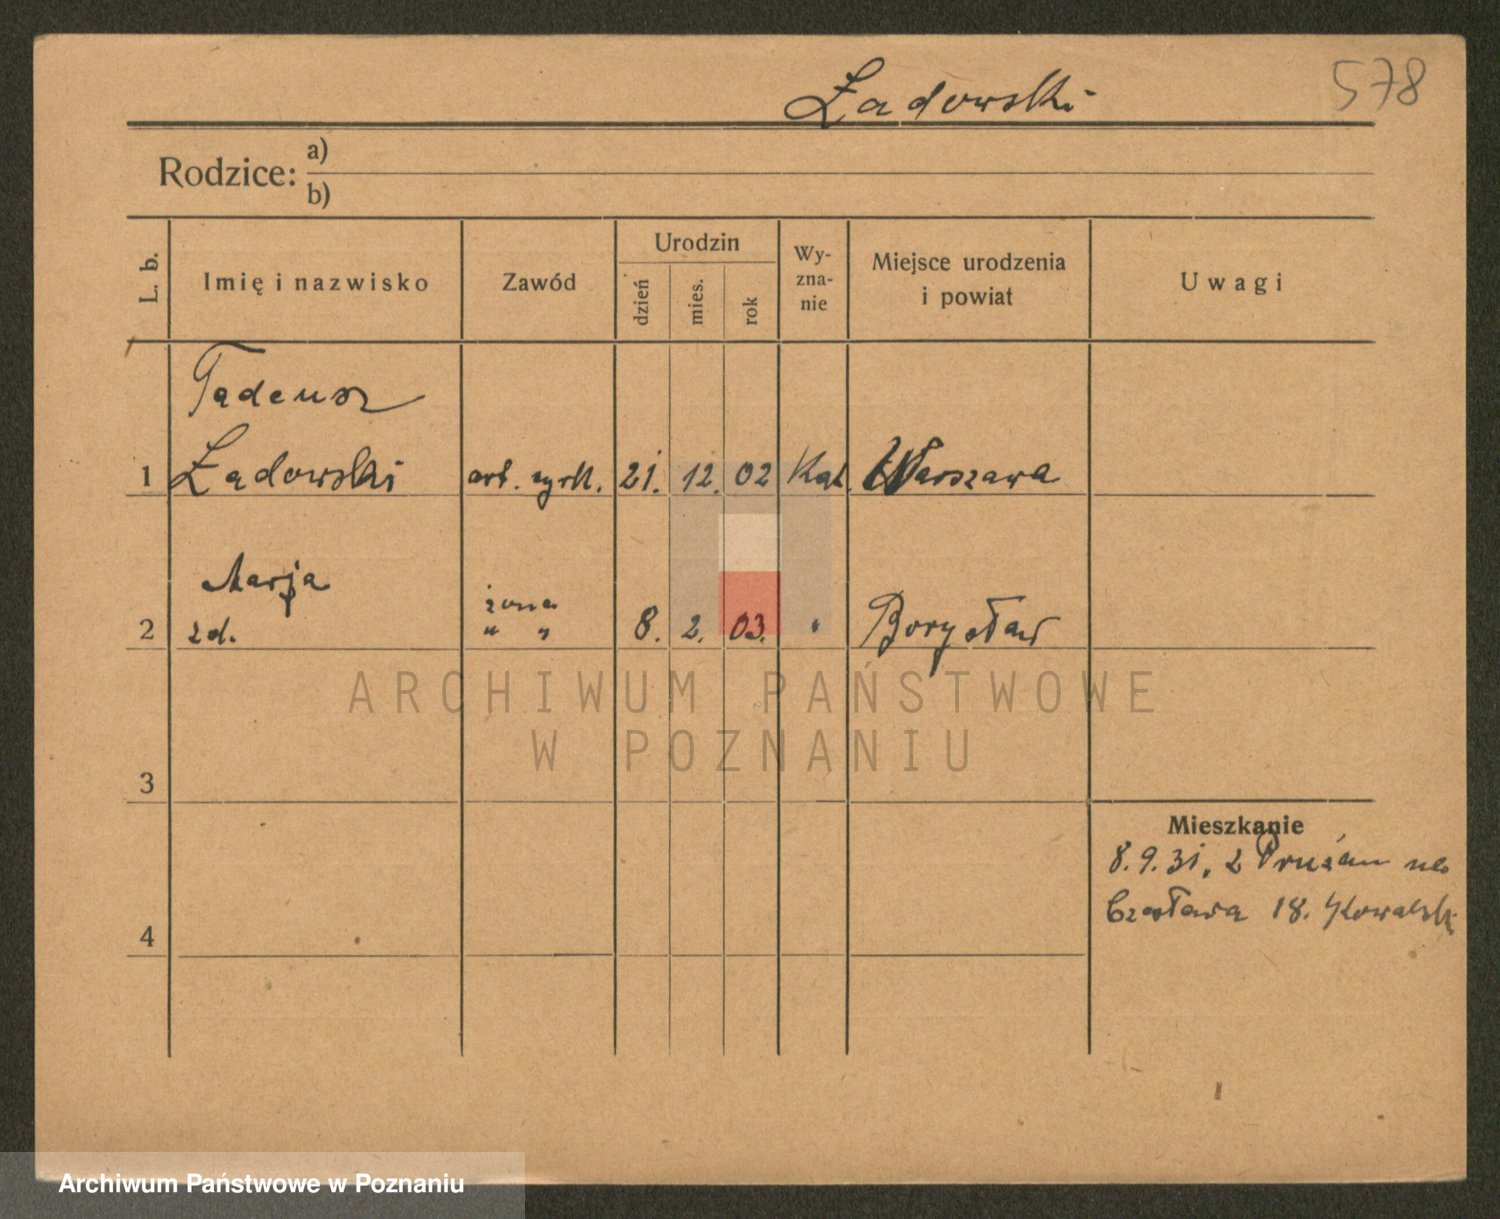 578
Ładowski
Rodzice: a)
b)
L. b.
Imię i nazwisko
Zawód
Urodzin
dzień
mies.
rok
Wy-
zna-
nie
Miejsce urodzenia
i powiat
Uwagi
Tadeusz
1 Ładowski art. cyrk. 21. 12. 02 Kat. Warszawa
Marja żona
2 zd. " " 8. 2. 03. " Borysław
ARCHIWUM PAŃSTWOWE
W POZNANIU
3
Mieszkanie
8.9.31. z Prużan
Czesława 18.
4
Archiwum Państwowe w Poznaniu